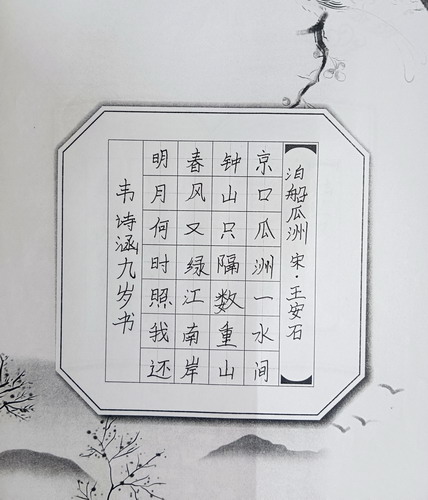 泊船瓜洲 宋·王安石
京口瓜洲一水间
钟山只隔数重山
春风又绿江南岸
明月何时照我还
韦诗涵九岁书